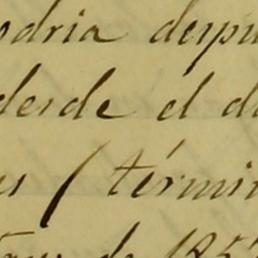 odria despu
desde el d
es / térmi
de 185